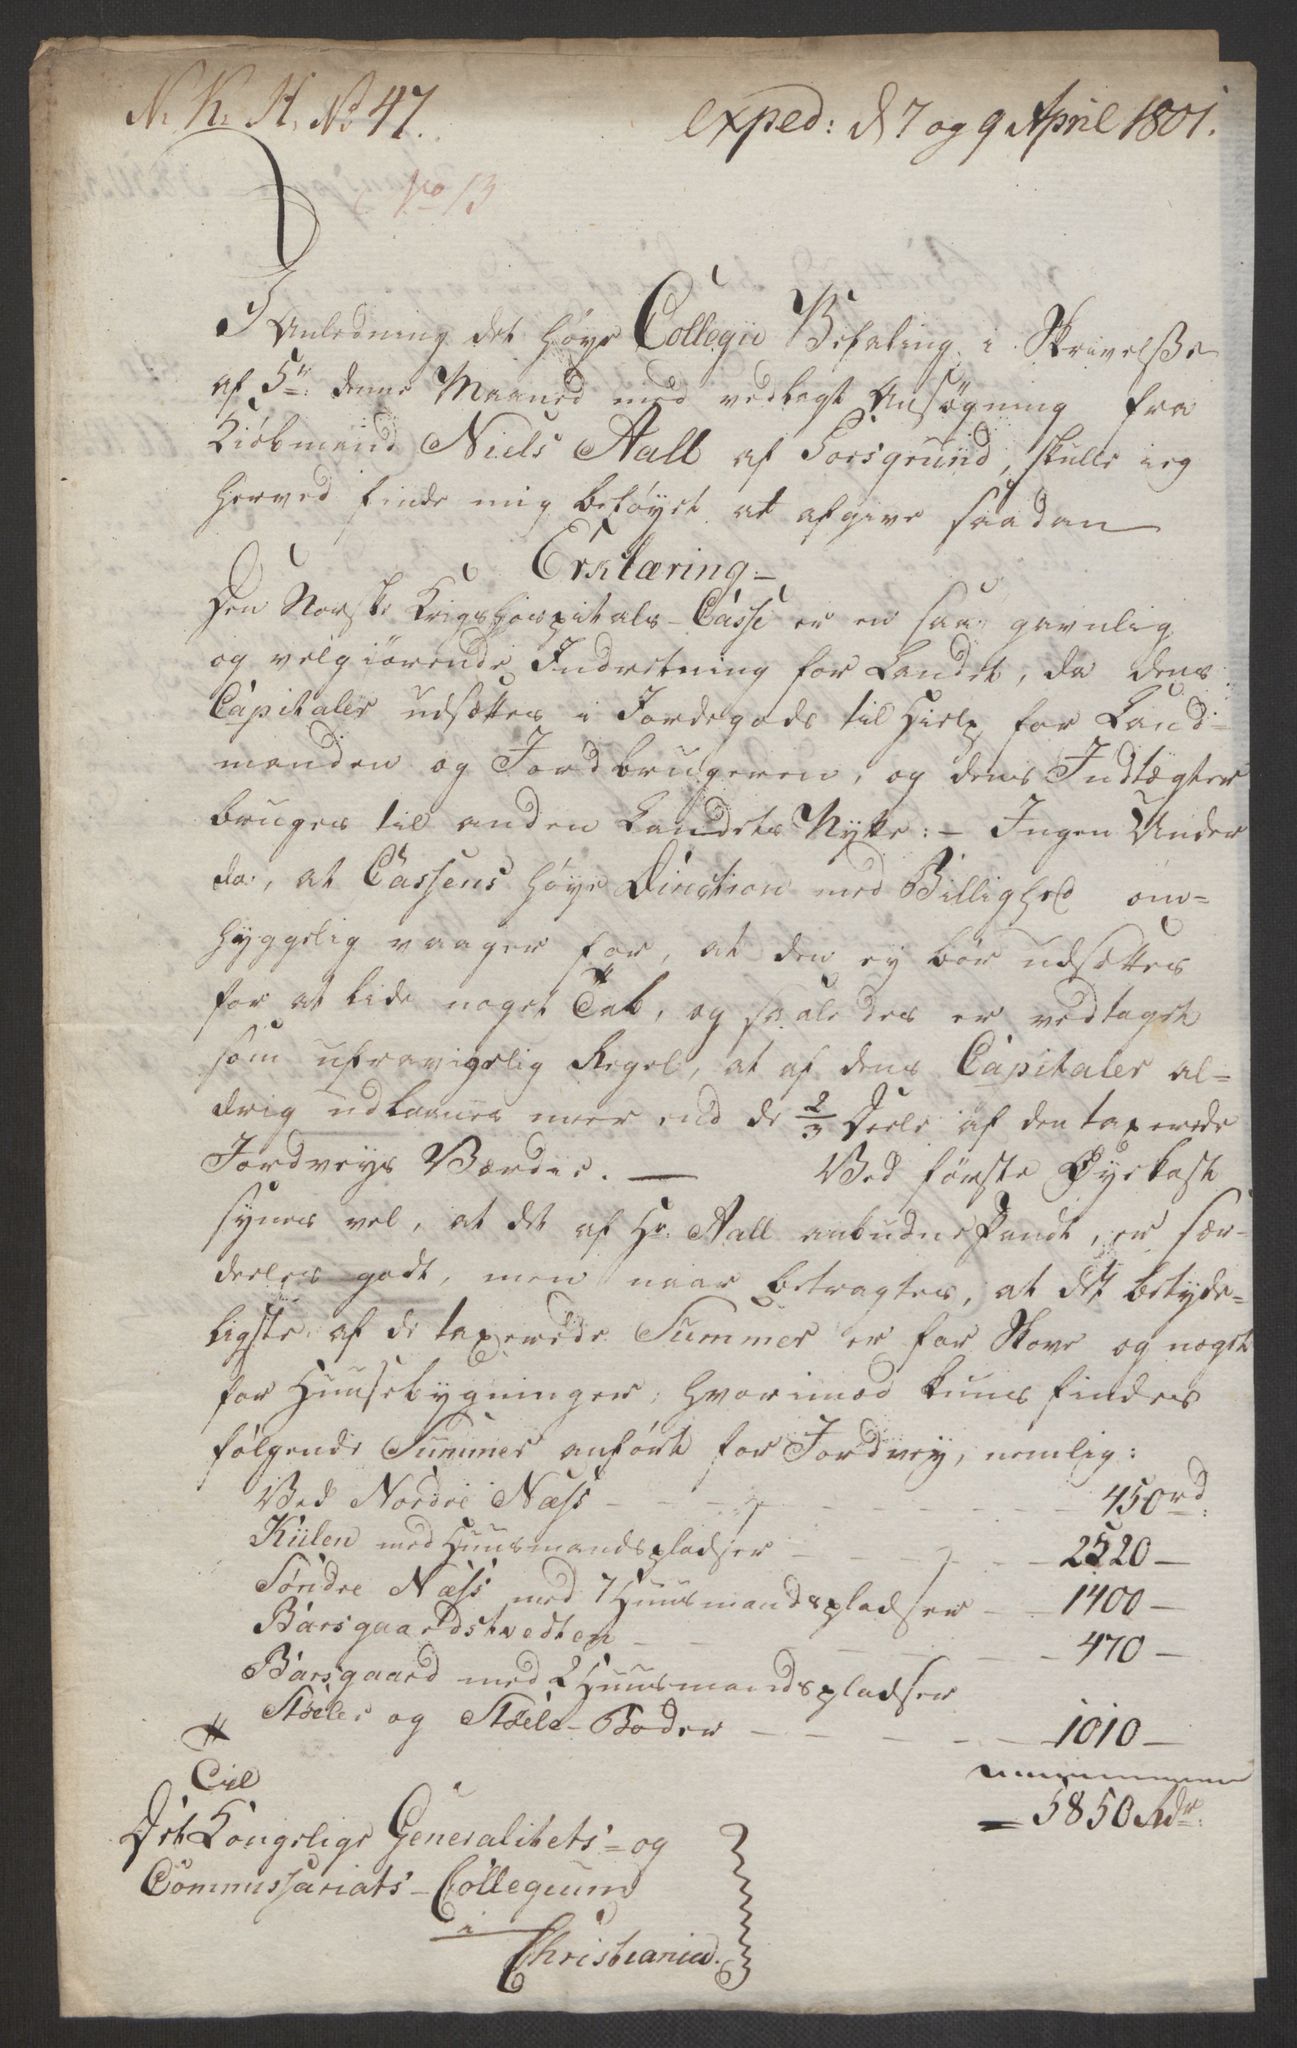 N. K. H. No 47.
exped: d 7 og 9 April 1801.
No 13
I Anledning det høye Collegii Befaling i Skrivelsse
af 5te denne Maaned med vedlagt Ansøgning fra
Kiøbmand Niels Aall af Porsgrund, skulle ieg
herved finde mig beføyet at afgive saadan
Erklæring. –
Den Norske Krigshospitals-Casse er en saa gavnlig
og velgiørende Indretning for Landet, da dens
Capitaler udsættes i Jordegods til Hielp for Land-
manden og Jordbrugeren, og dens Indtægter
bruges til anden Landets Nytte: – Ingen Under
da, at Cassens høye Direction med Billighed om-
hyggelig vaager for, at den ey bør udsættes
for at lide noget Tab, og saaledes er vedtaget
som ufravigelig Regel, at af dens Capitaler al-
drig udlaanes meer end de 2/3 Deele af den taxerede
Jordveys Værdie. — Ved første Øyekast
synes vel, at det af Hr. Aall anbudne Pandt, er sær-
deeles godt, men naar betragtes, at det betyde-
ligste af de taxerede Summer er for Skove og noget
for Huusebygninger, hvorimod kuns findes
følgende Summer anført for Jordvey, nemlig:
Ved Nordre Næss - - - 450 rd:
Kiilen med Huusmandspladser - - - 2520 —
Søndre Næss med 7 Huusmandspladser - - 1400 —
Barsgaardstvedten - - - 470 —
Barsgaard med 2 Huusmandspladser
Støeler og Støele-Boder - - - 1010 —
= 5850 Rdr.
Til
Det Kongelige Generalitets- og
Commissariats-Collegium
i
Christiania.